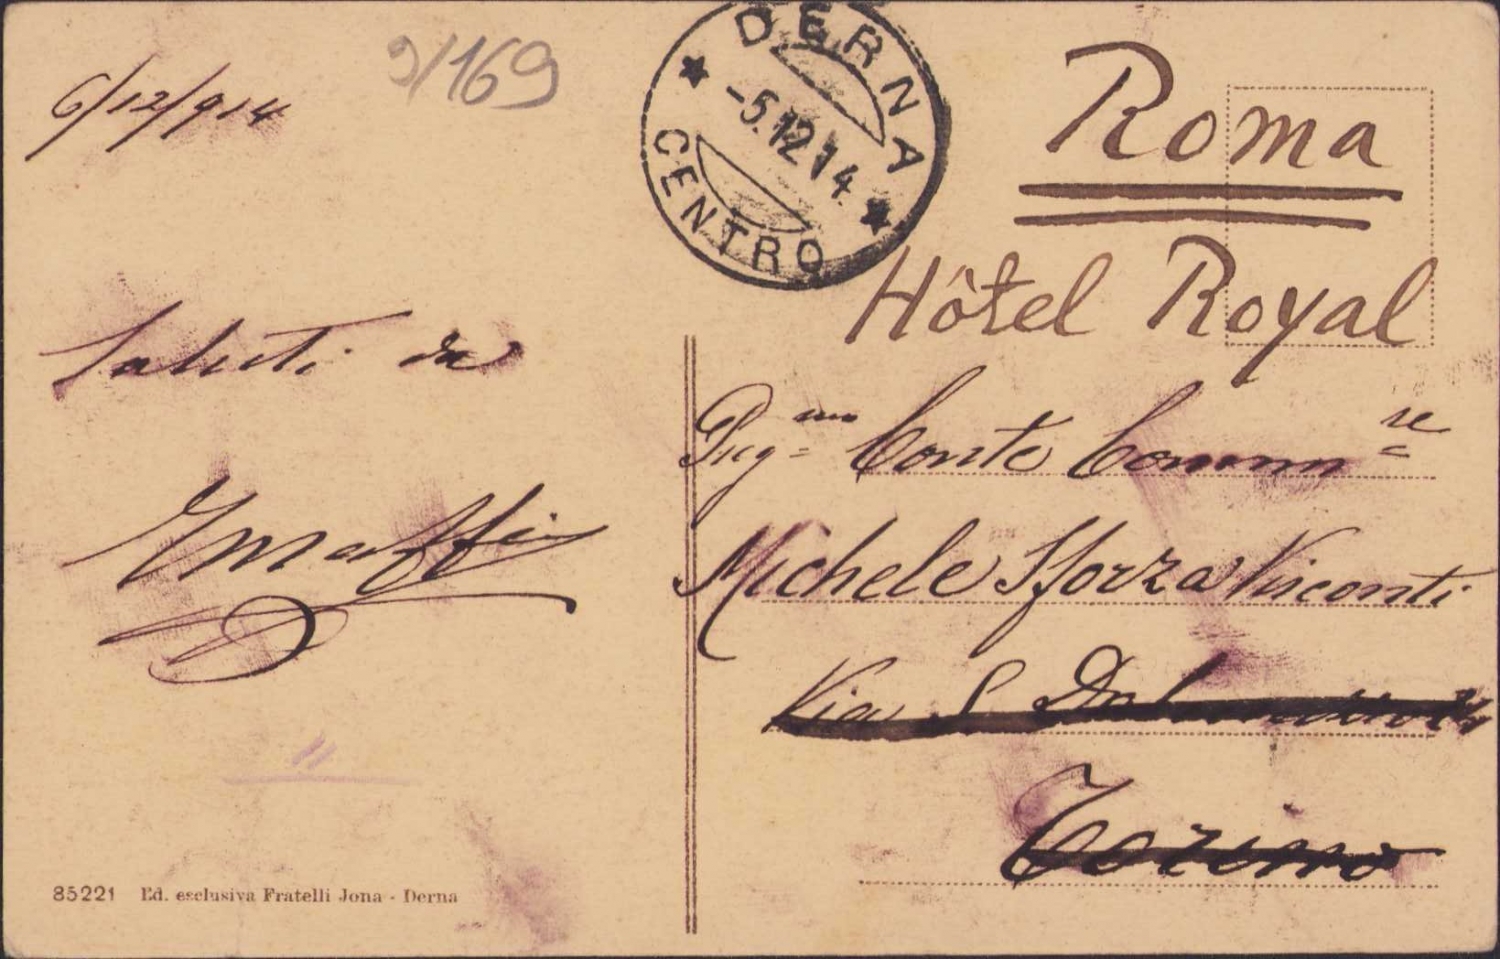 6/12/914
9/169
DERNA
-5.12.14.
CENTRO
Roma
Hôtel Royal
Saluti da
Preg.mo Conte Comm.re
Michele Sforza Visconti
Via S. Dalmazzo
Torino
85221 Ed. esclusiva Fratelli Jona - Derna